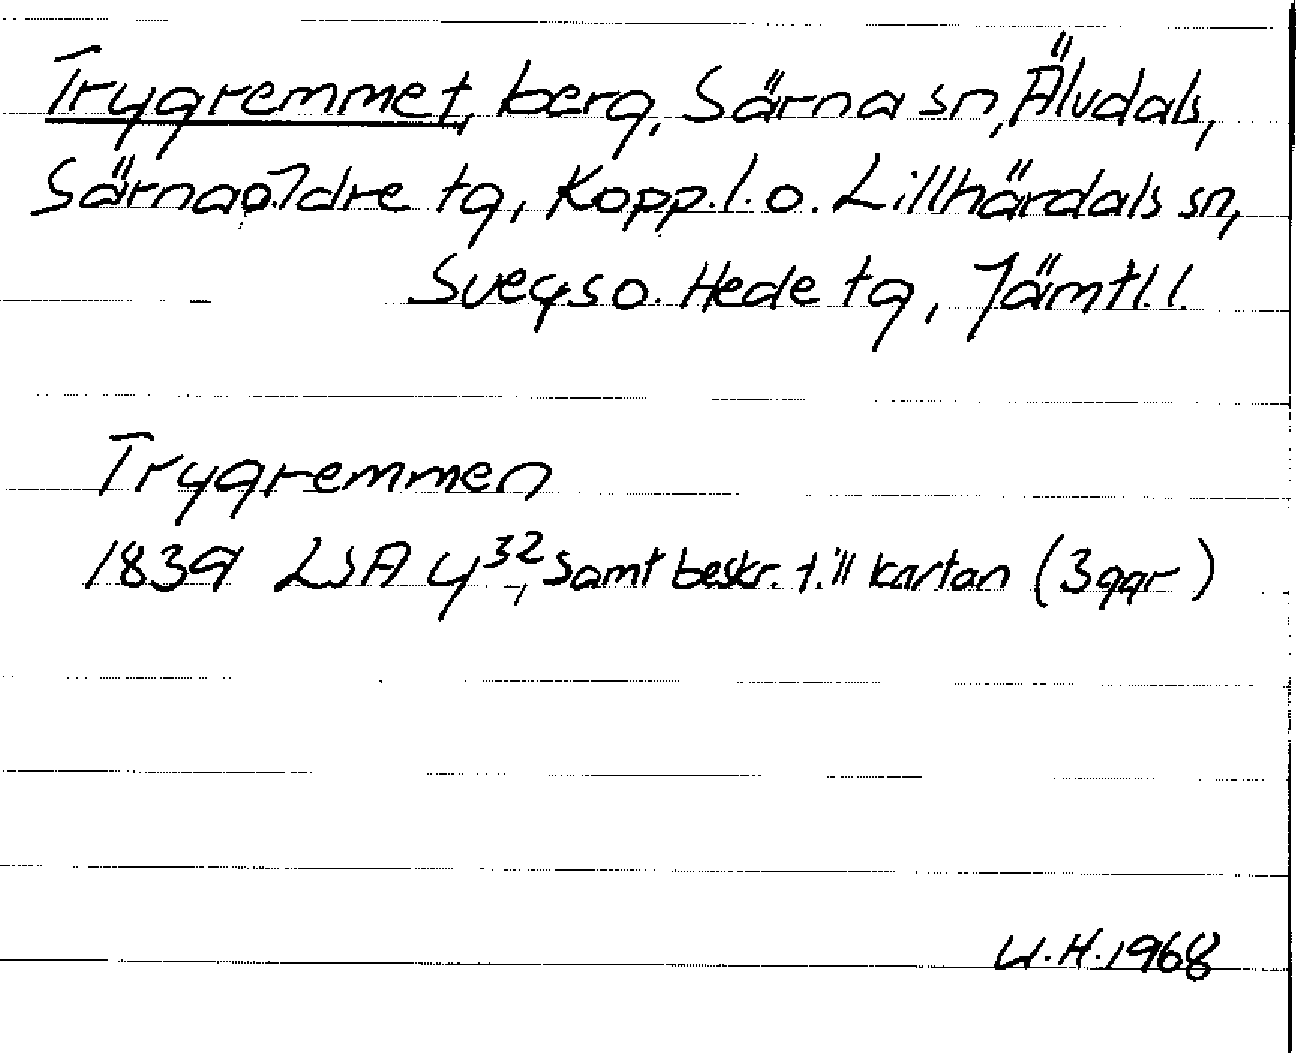 Trygremmet, berg, Särna sn, Älvdals,
Särna o. Idre tg, Kopp. l. o. Lillhärdals sn,
Svegs o. Hede tg, Jämtl. l.
Trygremmen
1839 LSA Y 32/7 samt beskr. till kartan (3 ggr)
U.H. 1968